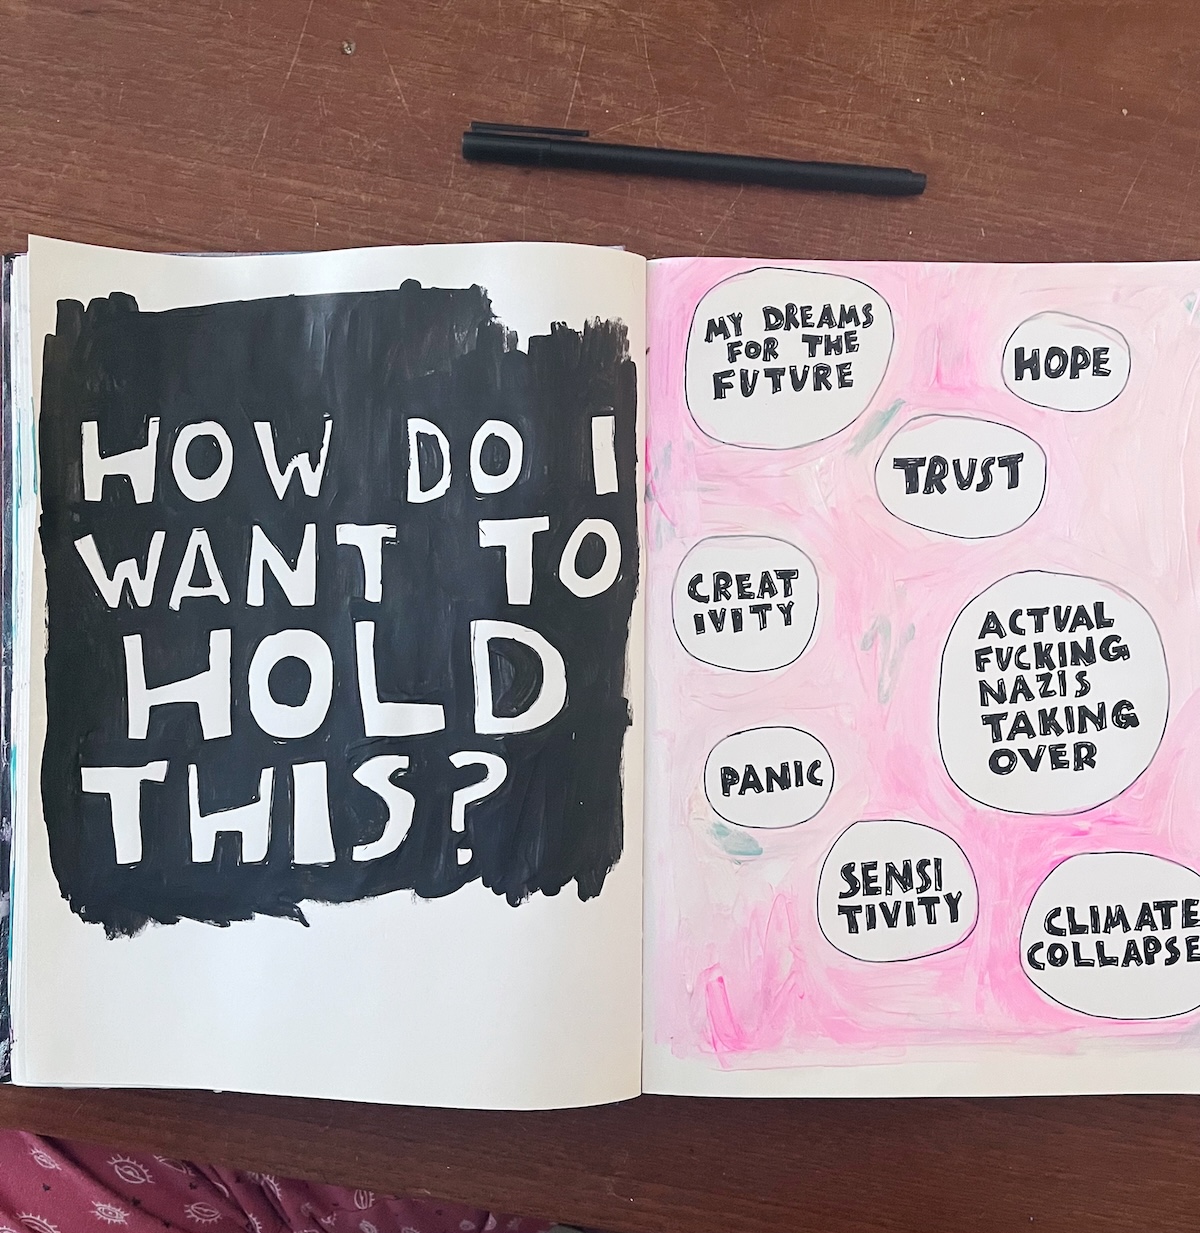 HOW DO I
WANT TO
HOLD
THIS?
MY DREAMS
FOR THE
FUTURE
HOPE
TRUST
CREAT
IVITY
ACTUAL
FUCKING
NAZIS
TAKING
OVER
PANIC
SENSI
TIVITY
CLIMATE
COLLAPSE